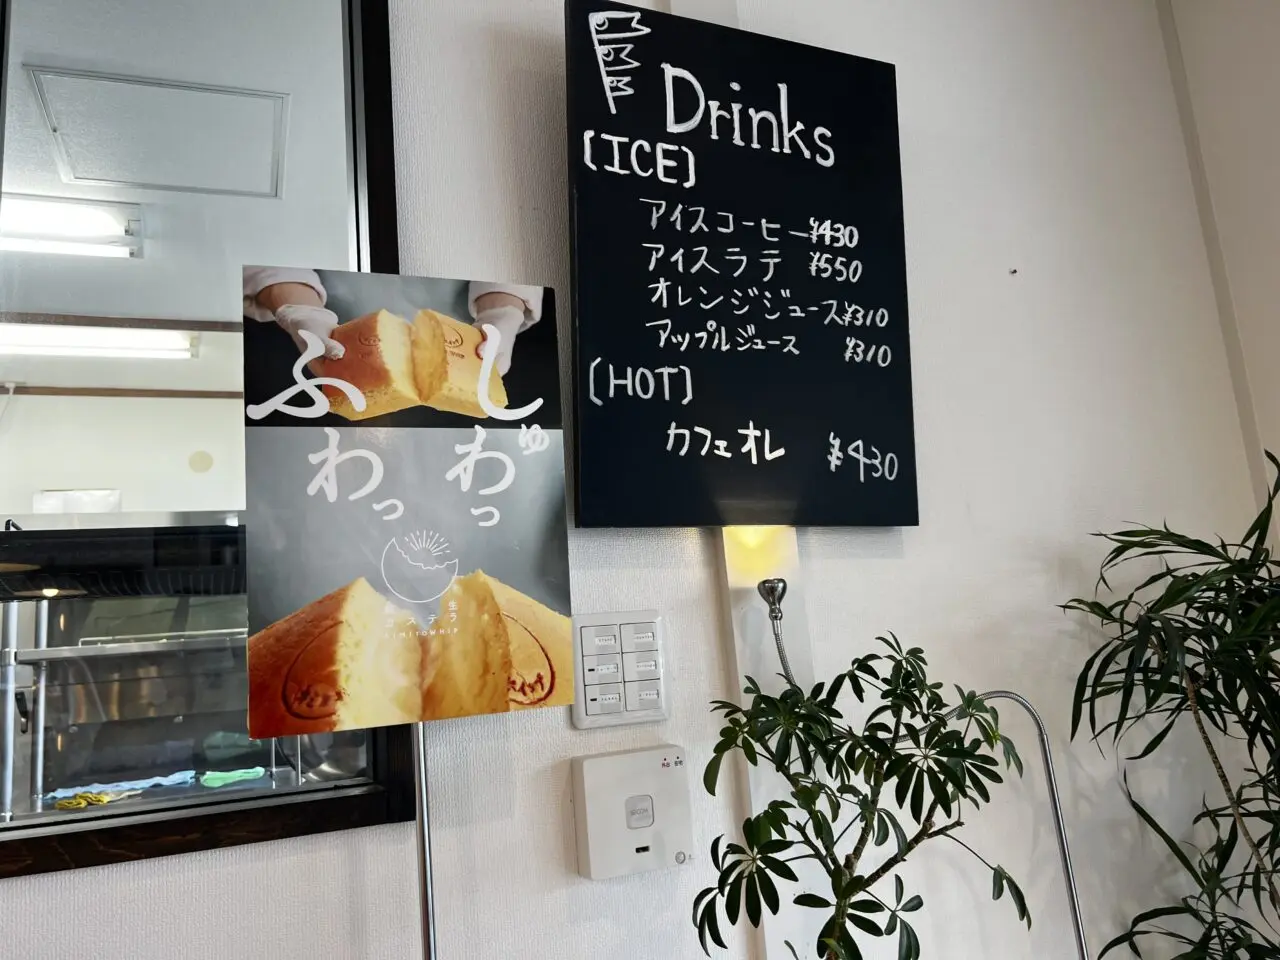 Drinks
[ICE]
アイスコーヒー ¥430
アイスラテ ¥550
オレンジジュース ¥310
アップルジュース ¥310
[HOT]
カフェオレ ¥430
しゅわっ
ふわっ
生
カステラ
KIMITOWHIP
SECOM